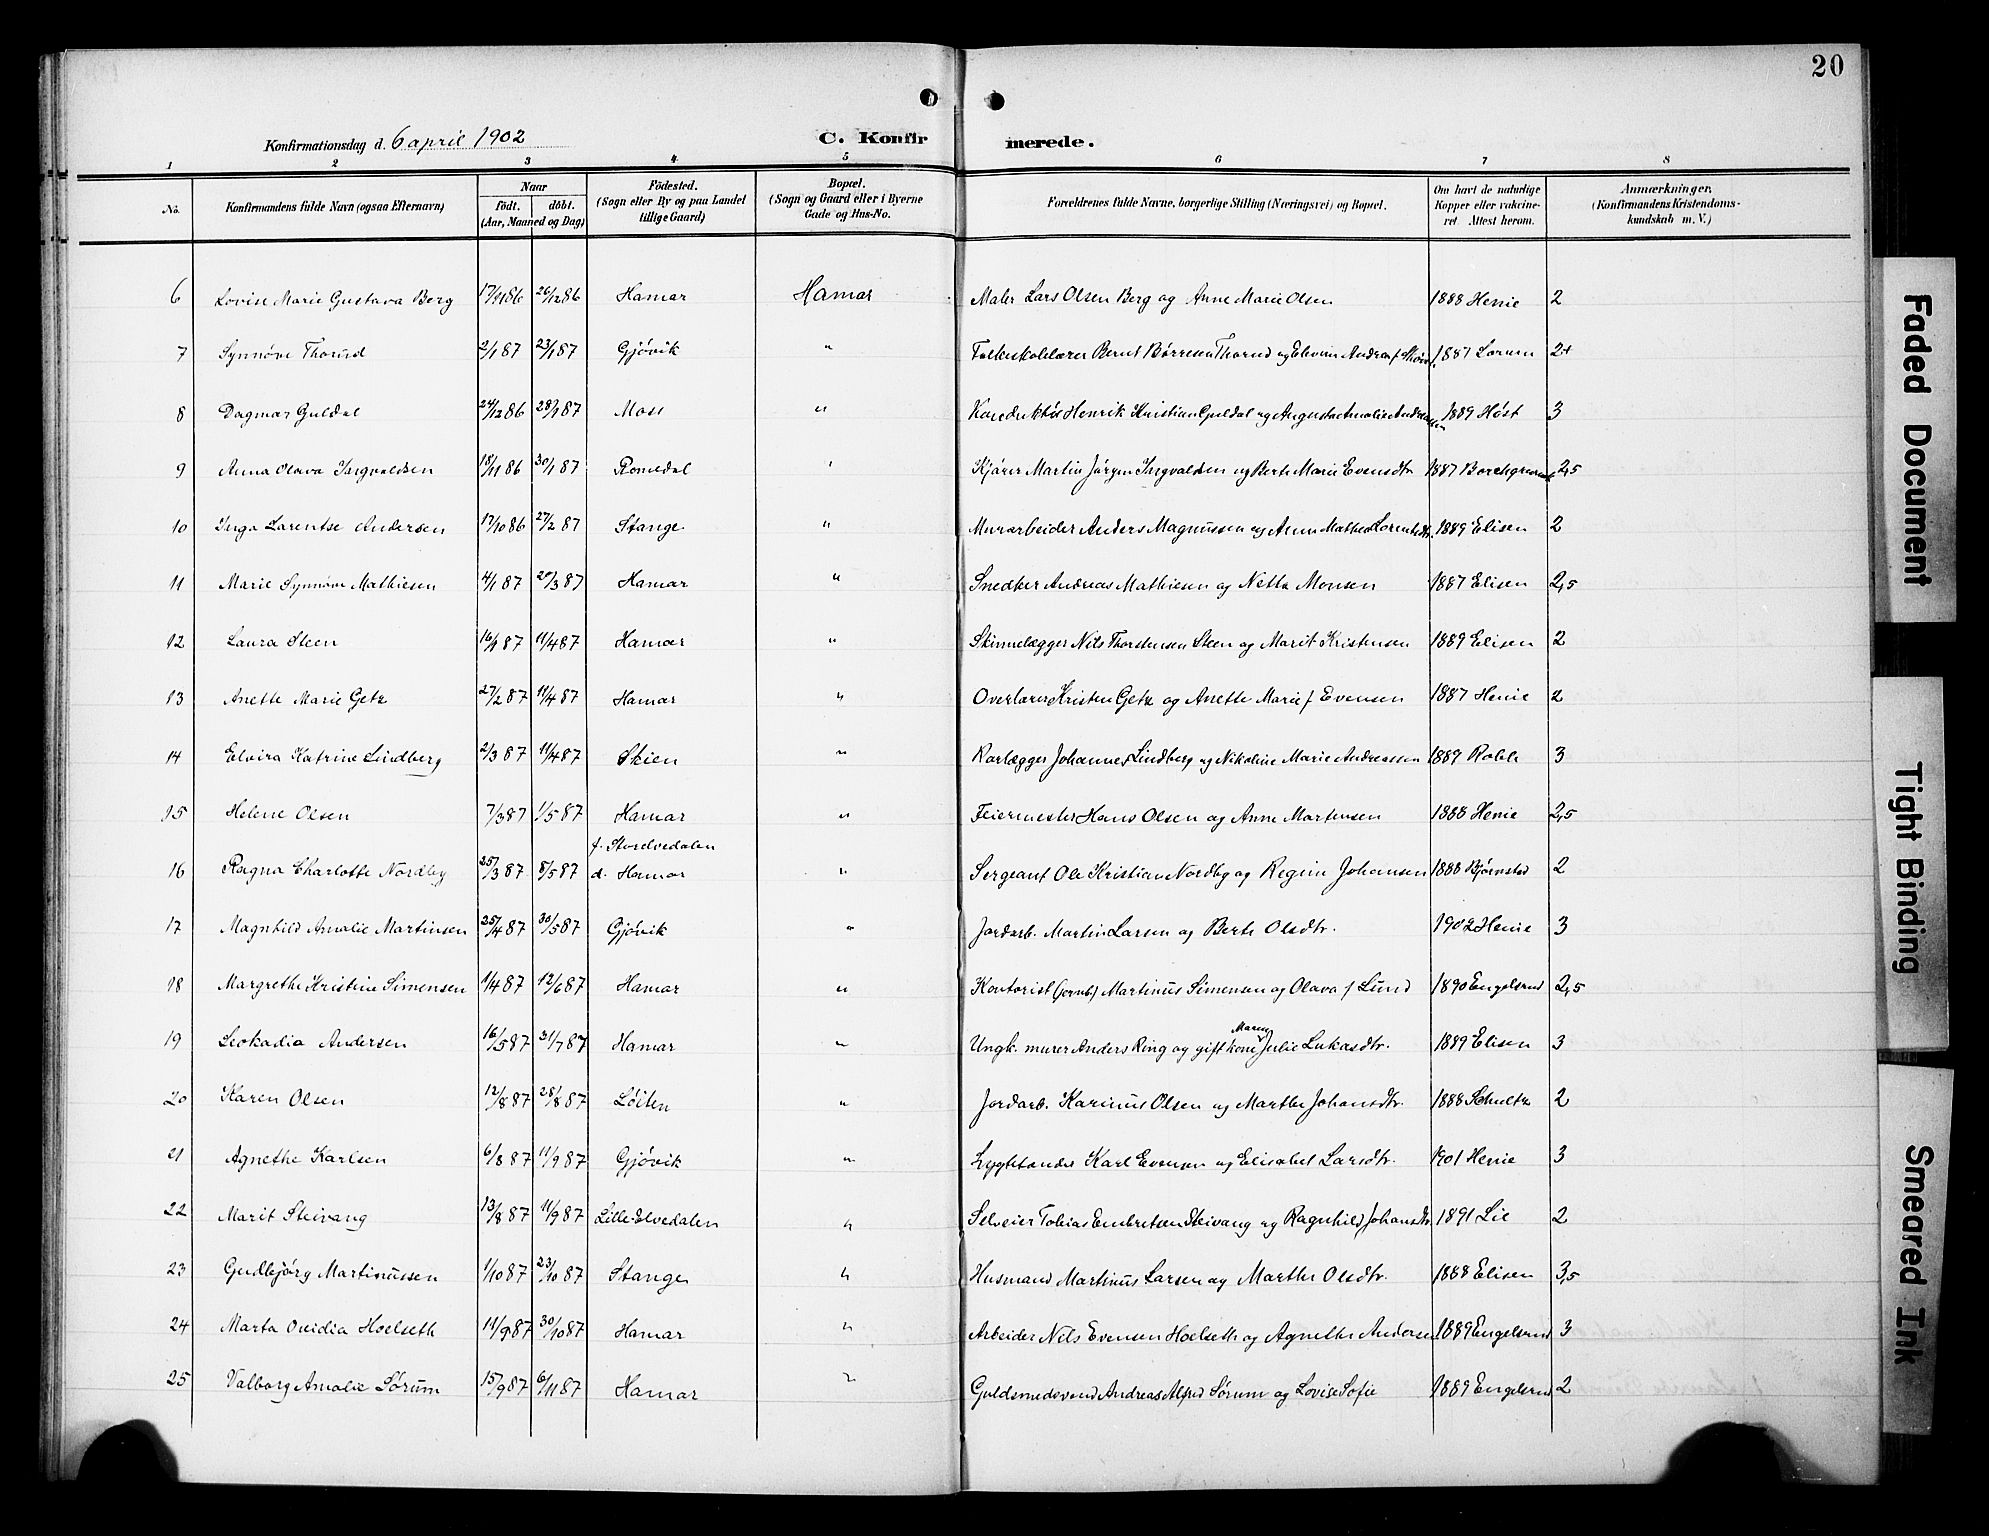 20
Konfirmationsdag d. 6 april 1902 C. Konfir merede.
1 2 3 4 5 6 7 8
No. Konfirmandens fulde Navn (ogsaa Efternavn) Naar Födt. döbt. (Aar, Maaned og Dag) Födested. (Sogn eller By og paa Landet tillige Gaard) Bopæl. (Sogn og Gaard eller i Byerne Gade og Hus-No. Forældrenes fulde Navne, borgerlige Stilling (Næringsvei) og Bopæl. Om havt de naturlige Kopper eller vaccineret Attest herom. Anmærkninger. (Konfirmandens Kristendomskundskab m. V.)
6 Lovise Marie Gustava Berg 17/11 86 26/12 86 Hamar Hamar Maler Lars Olsen Berg og Anne Marie Olsen 1888 Henie 2
7 Synnöve Thorud 2/1 87 23/1 87 Gjövik " Folkeskolelærer Bernt Börresen Thorud og 1887 Lorum 2+
8 Dagmar Guldal 24/12 86 28/1 87 Moss " Henrik Kristian Guldal og Augusta Amalie Andreassen 1889 Höst 3
9 Anna Olava Ingvaldsen 18/11 86 30/1 87 Romedal " Kjörer Martin Jörgen Ingvaldsen og Berte Marie Evensdtr 1887 Borchgrevink 2,5
10 Inga Larentse Andersen 17/10 86 27/2 87 Stange " Murarbeider Anders Magnussen og Anne Mathea Lorentsdtr. 1889 Elisen 2
11 Marie Synnöve Mathiesen 4/1 87 20/3 87 Hamar " Snedker Andreas Mathiesen og Netta Monsen 1887 Elisen 2,5
12 Laura Steen 16/1 87 11/4 87 Hamar " Skinnelægger Nils Thorstensen Steen og Marit Kristensen 1889 Elisen 2
13 Anette Marie Getz 27/2 87 11/4 87 Hamar " Overlærer Kristen Getz og Anette Marie f Evensen 1887 Henie 2
14 Elvira Katrine Lindberg 2/3 87 11/4 87 Skien " Rørlægger Johannes Lindberg og Nikoline Marie Andreassen 1889 Robb 3
15 Helene Olsen 7/3 87 1/5 87 Hamar " Feiermester Hans Olsen og Anne Martensen 1888 Henie 2,5
16 Ragna Charlotte Nordby 25/3 87 8/5 87 f. Storelvedalen d. Hamar " Sergeant Ole Kristian Nordby og Regine Johansen 1888 Björnstad 2
17 Magnhild Amalie Martinsen 25/4 87 30/5 87 Gjövik " Jordarb. Martin Larsen og Berte Olsdtr. 1902 Henie 3
18 Margrethe Kristine Simensen 1/4 87 12/6 87 Hamar " Kontorist (jernb) Martinus Simensen og Olava f Lund 1890 Engelsrud 2,5
19 Leokadia Andersen 16/5 87 31/7 87 Hamar " Ungk. murer Anders Ring og gift kone Maren Julie Lukasdtr. 1889 Elisen 3
20 Karen Olsen 12/8 87 28/8 87 Löiten " Jordarb. Karinus Olsen og Marthe Johansdtr. 1888 Schultz 2
21 Agnethe Karlsen 6/8 87 11/9 87 Gjövik " Lygttænder Karl Evensen og Elisabet Larsdtr. 1901 Henie 3
22 Marit Steivang 13/8 87 11/9 87 Lille-Elvedalen " Selveier Tobias Embretsen Steivang og Ragnhild Johansdtr 1891 Lie 2
23 Gudbjörg Martinussen 1/10 87 23/10 87 Stange " Husmand Martinus Larsen og Marthe Olsdtr. 1888 Elisen 3,5
24 Marta Ovidia Hoelseth 11/9 87 30/10 87 Hamar " Arbeider Nils Evensen Hoelseth og Agnethe Andersen 1889 Engelsrud 3
25 Valborg Amalie Sörum 15/9 87 6/11 87 Hamar " Guldsmedsvend Andreas Alfred Sörum og Lovise Sofie 1889 Engelsrud 2
Faded Document
Tight Binding
Smeared Ink